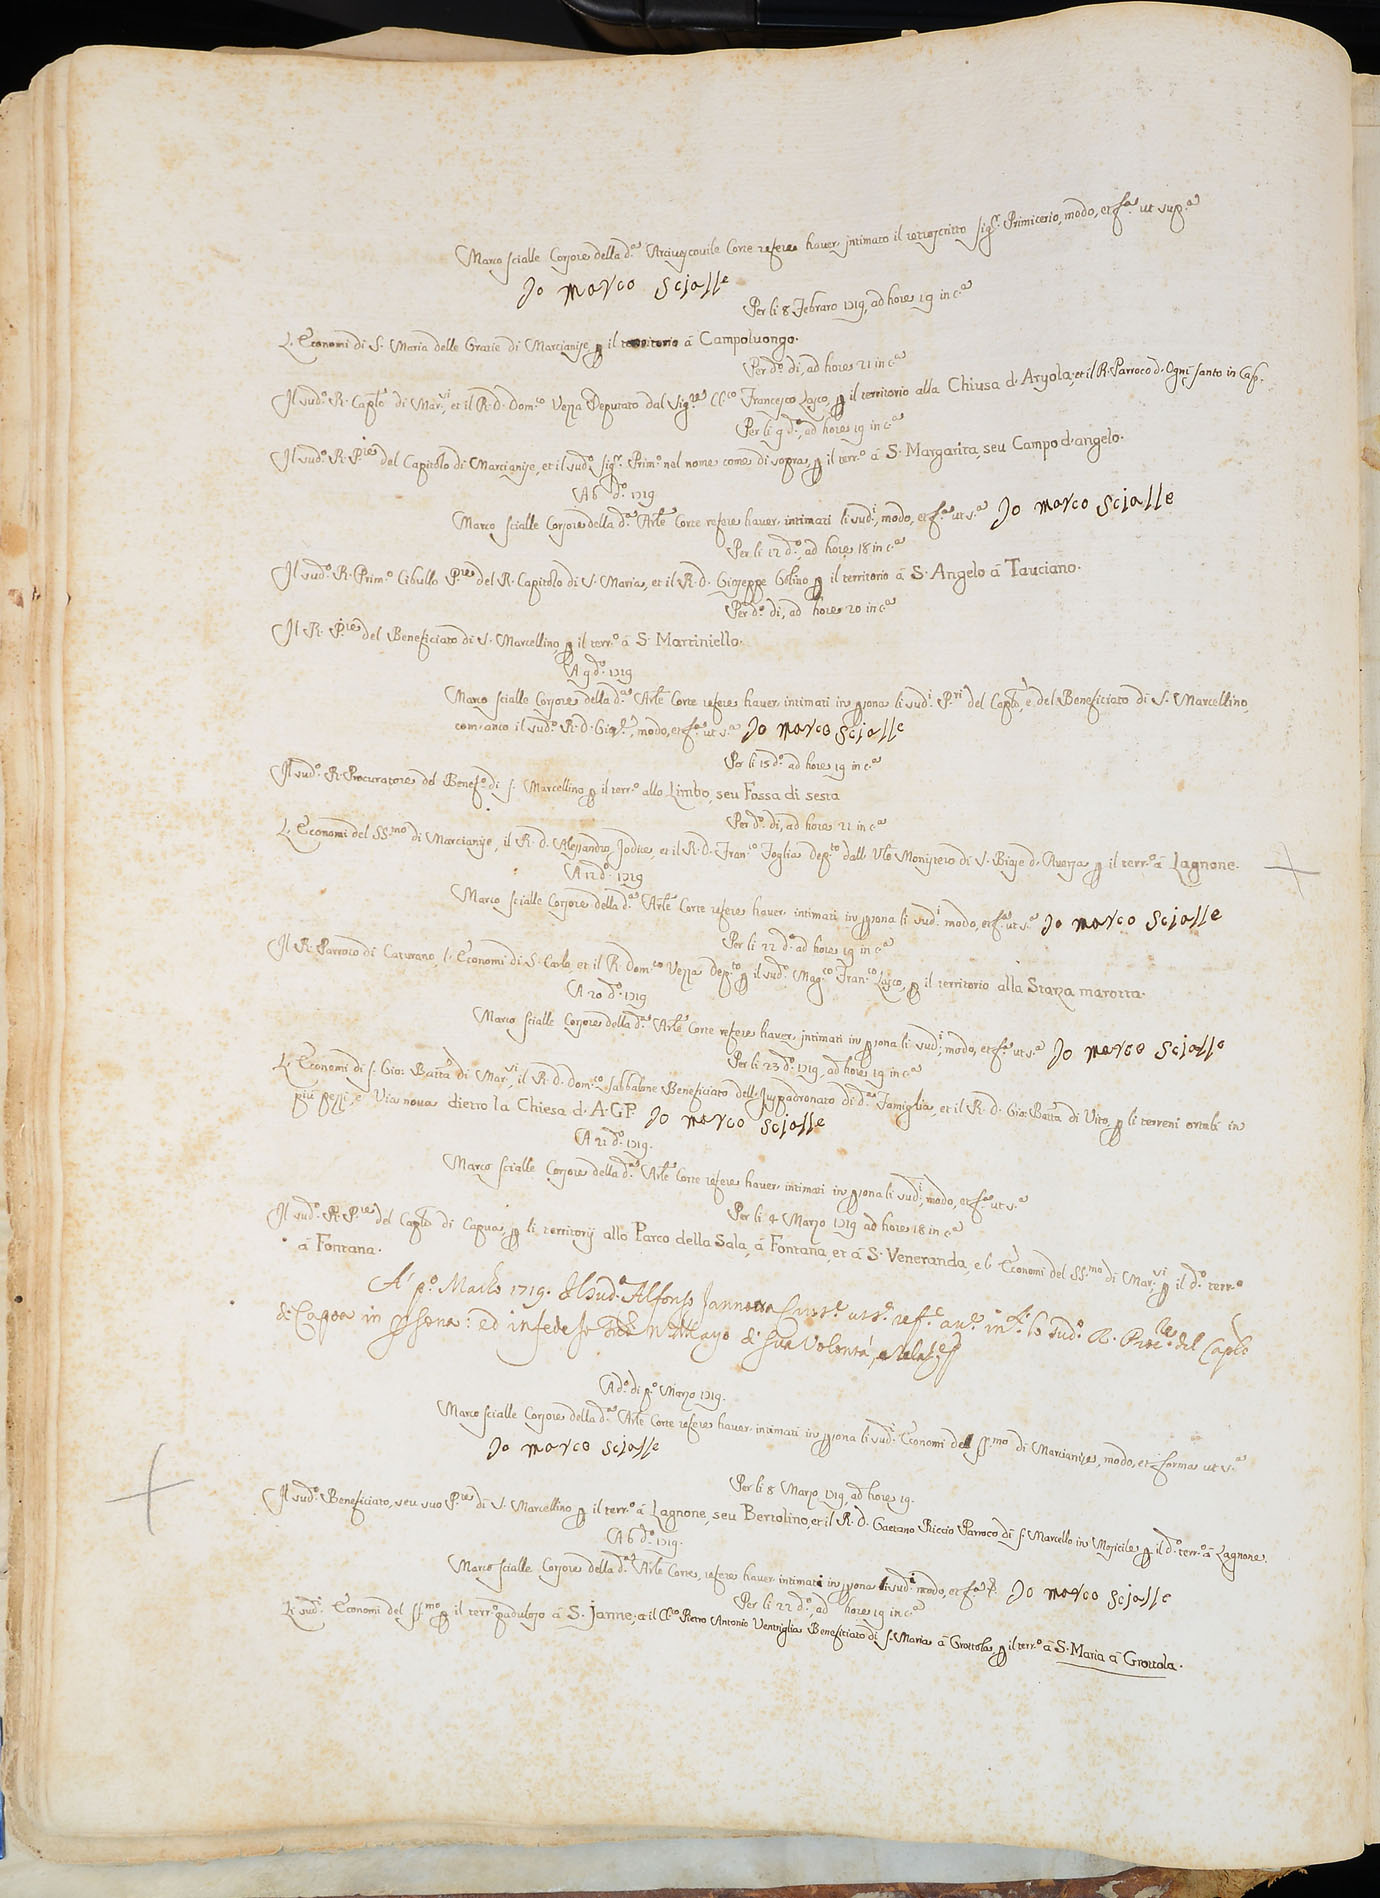 Marco Scialle Corsore della d.ª Arcivescovile Corte refere haver intimato il retroscritto Sig.r Primicerio, modo, et f.ª ut sup.ª
Jo Marco Scialle
Per li 8 Febraro 1719, ad hore 19 in c.ª
L'Economi di S. Maria delle Gratie di Marcianise, per il territorio á Campoluongo.
Per d.º di, ad hore 21 in c.ª
Il sud.º R. Caplo di Mar.vi, et il R. D. Dom.co Vezza Deputato dal Francesco Lasco, per il territorio alla Chiusa d'Aryola; et il R. Parroco d'Ogni Santo in Cap.
Per li 9 d.º, ad hore 19 in c.ª
Il sud.º R. P.re del Capitolo di Marcianise, et il sud.º Sig.r Prim.º nel nome come di sopra, per il terr.º á S. Margarita, seu Campo d'angelo.
A 6 d.º 1719
Marco Scialle Corsore della d.ª Arle Corte refere haver intimati li sud.i, modo, et f.ª ut s.ª Jo Marco Scialle
Per li 12 d.º, ad hore 18 in c.ª
Il sud.º R. Prim.º Cibullo P.re del R. Capitolo di S. Maria, et il R. D. Gioseppe Golino per il territorio á S. Angelo á Tauciano.
Per d.º di, ad hore 20 in c.ª
Il R. P.re del Beneficiato di S. Marcellino, per il terr.º á S. Martiniello.
A 9 d.º 1719
Marco Scialle Corsore della d.ª Arle Corte refere haver intimati in persona li sud.i P.ri del Caplo, e del Beneficiato di S. Marcellino,
com'anco il sud.º R. D. Gios.e, modo, et f.ª ut s.ª Jo Marco Scialle
Per li 15 d.º ad hore 19 in c.ª
Il sud.º R. Procuratore del Benef.º di S. Marcellino per il terr.º allo Limbo, seu Fossa di sesta
Per d.º di, ad hore 21 in c.ª
L'Economi del SS.mo di Marcianise, il R. D. Alessandro Jodice, et il R. D. Fran.co Foglia dep.to dall' Ven. Monistero di S. Biase d'Aversa per il terr.º á Lagnone.
A 12 d.º 1719
Marco Scialle Corsore della d.ª Arle Corte refere haver intimati in persona li sud.i modo, et f.ª ut s.ª Jo Marco Scialle
Per li 22 d.º ad hore 19 in c.ª
Il R. Parroco di Caturano, l'Economi di S. Carlo, et il R. Dom.co Vezza Dep.to per il sud.º Mag.co Fran.co Lasco, per il territorio alla Starza marotta.
A 20 d.º 1719
Marco Scialle Corsore della d.ª Arle Corte refere haver intimati in persona li sud.i, modo, et f.ª ut s.ª Jo Marco Scialle
Per li 23 d.º 1719, ad hore 19 in c.ª
L'Economi di S. Gio: Batta di Mar.vi, il R. D. Dom.co Beneficiato dell' Juspadronato di d.ª Famiglia, et il R. D. Gio: Batta di Vito, per li terreni in
più pezzi, e Via nova dietro la Chiesa d'A.G.P. Jo Marco Scialle
A 21 d.º 1719.
Marco Scialle Corsore della d.ª Arle Corte refere haver intimati in persona li sud.i, modo, et f.ª ut s.ª
Per li 4 Marzo 1719 ad hore 18 in c.ª
Il sud.º R. P.re del Caplo di Capua, per li territorij allo Parco della Sala, á Fontana, et á S. Veneranda, e l'Economi del SS.mo di Mar.vi per il d.º terr.º
á Fontana.
A' p.º Marzo 1719. Il sud.º Alfonso Jannotta lo sud.º R. Proc.re del Caplo
di Capoa in persona: ed in fede di sua Volontà
A d.º di p.º Marzo 1719.
Marco Scialle Corsore della d.ª Arle Corte refere haver intimati in persona li sud.i Economi del SS.mo di Marcianise, modo, et forma ut s.ª
Jo Marco Scialle
Per li 8 Marzo 1719, ad hore 19.
Il sud.º Beneficiato, seu suo P.re di S. Marcellino per il terr.º á Lagnone, seu Bertolino, et il R. D. Gaetano Riccio Parroco di S. Marcello in Mosicile per il d.º terr.º á Lagnone.
A 6 d.º 1719.
Marco Scialle Corsore della d.ª Arle Corte, refere haver intimati in persona li sud.i modo, et f.ª Jo Marco Scialle
Per li 22 d.º, ad hore 19 in c.ª
Li sud.i Economi del SS.mo per il terr.º paduloso á S. Janne; et il Cl.co Pietro Antonio Ventriglia Beneficiato di S. Maria á Grottola, per il terr.º á S. Maria á Grottola.